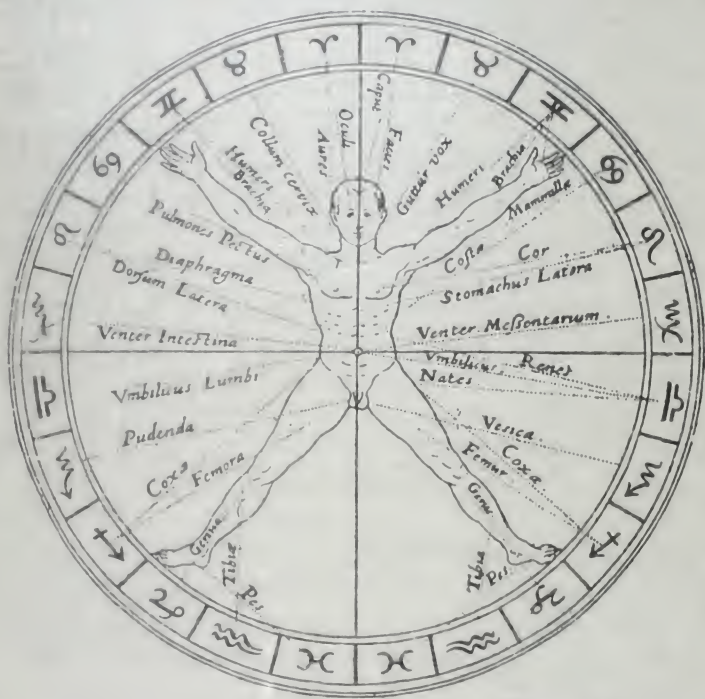 Oculi
Aures
Collum cervix
Humeri
Brachia
Pulmones Pectus
Diaphragma
Dorsum Latera
Venter Intestina
Vmbilicus Lumbi
Pudenda
Coxæ
Femora
Genua
Tibiæ
Pes
Caput
Fauces
Guttur vox
Humeri
Brachia
Mammillæ
Costa
Cor
Stomachus Latera
Venter Messentarium
Vmbilicus
Renes
Nates
Vesica
Coxa
Femur
Genu
Tibia
Pes